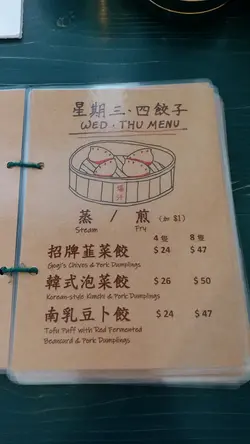 星期三．四餃子
WED . THU MENU
蒸 / 煎 (加 $1)
Steam Fry
4 隻 8 隻
招牌韮菜餃 $24 $47
Gogi's Chives & Pork Dumplings
韓式泡菜餃 $26 $50
Korean-style Kimchi & Pork Dumplings
南乳豆卜餃 $24 $47
Tofu Puff with Red Fermented
Beancurd & Pork Dumplings